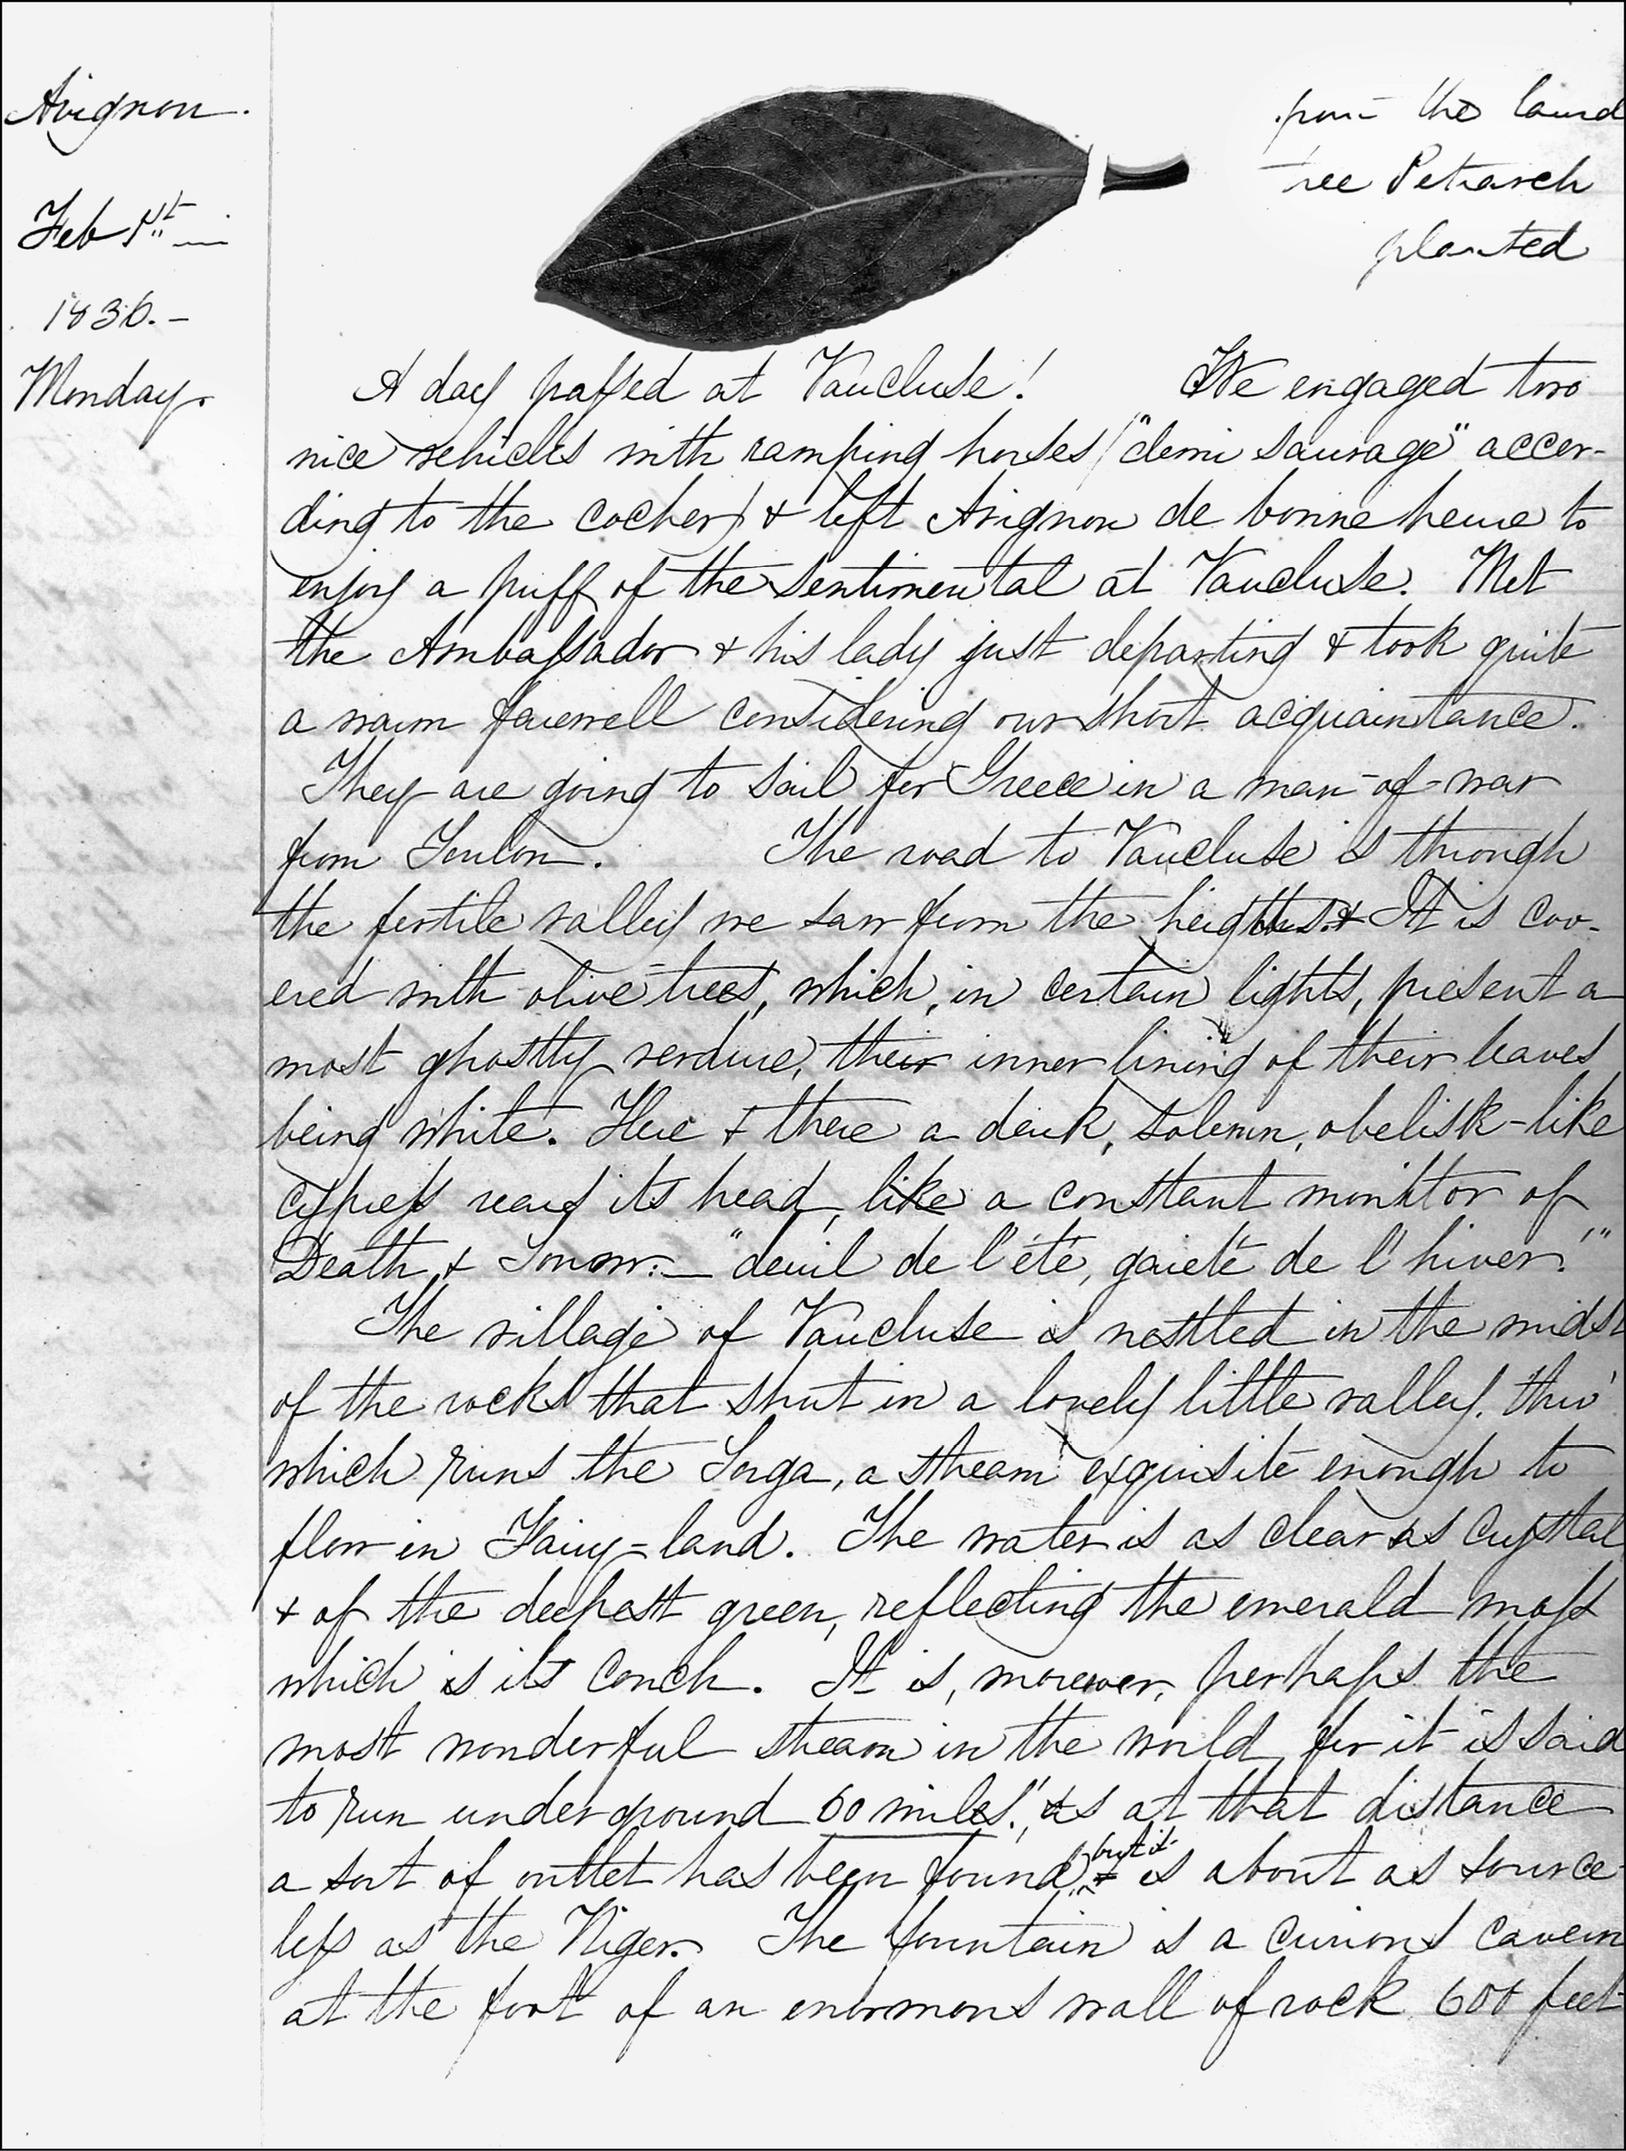 Avignon.
Feb 1st
1836. –
Monday.
from the laurel
tree Petrarch
planted
A day passed at Vaucluse! We engaged two
nice vehicles with ramping horses ("demi sauvage" accor-
ding to the cocher) & left Avignon de bonne heure to
enjoy a puff of the sentimental at Vaucluse. Met
the Ambassador & his lady just departing & took quite
a warm farewell considering our short acquaintance.
They are going to sail for Greece in a man-of-war
from Toulon. The road to Vaucluse is through
the fertile valley we saw from the heights. & It is cov-
ered with olive-trees, which, in certain lights, present a
most ghostly verdure, their inner lining of their leaves
being white. Here & there a dark, solemn, obelisk-like
cypress rears its head, like a constant monitor of
Death & Sorrow: — "deuil de l'été, gaieté de l'hiver!"
The village of Vaucluse is nestled in the midst
of the rocks that shut in a lovely little valley, thro'
which runs the Sorga, a stream exquisite enough to
flow in Fairy-land. The water is as clear as crystal
& of the deepest green, reflecting the emerald moss
which is its couch. It is, moreover, perhaps the
most wonderful stream in the world, for it is said
to run underground 60 miles!, as at that distance
a sort of outlet has been found, & but it is about as source-
less as the Niger. The fountain is a curious cavern
at the foot of an enormous wall of rock 600 feet